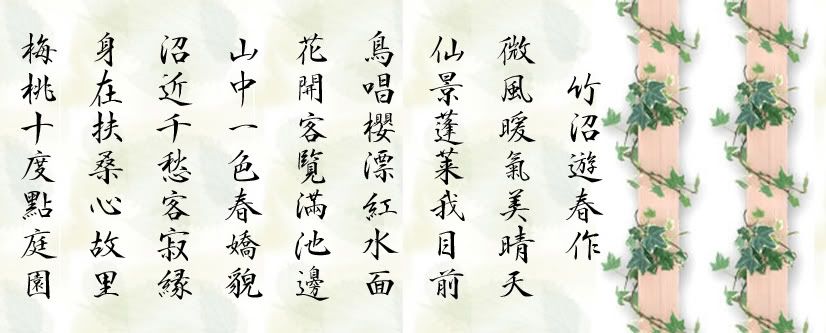 竹沼遊春作
微風暖氣美晴天
仙景蓬萊我目前
鳥唱櫻漂紅水面
花開客覽滿池邊
山中一色春嬌貌
沼近千愁客寂緣
身在扶桑心故里
梅桃十度點庭園